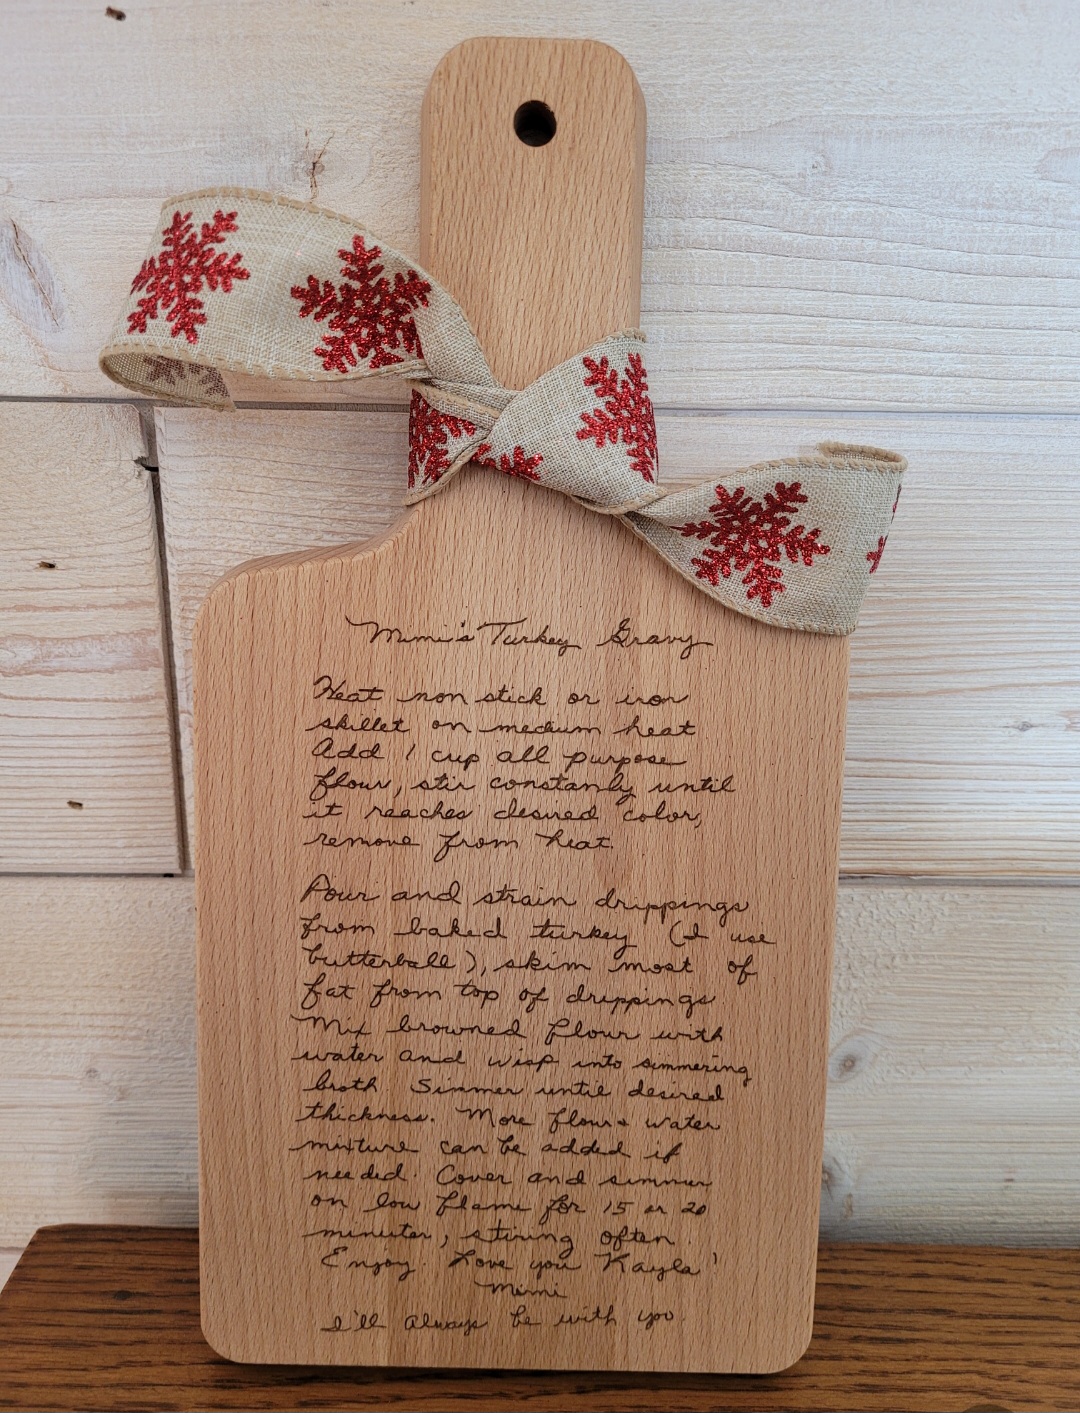 Mimi's Turkey Gravy
Heat non stick or iron
skillet on medium heat
Add 1 cup all purpose
flour, stir constanly until
it reaches desired color,
remove from heat.
Pour and strain drippings
from baked turkey (I use
butterball), skim most of
fat from top of drippings
Mix browned flour with
water and wisp into simmering
broth Simmer until desired
thickness. More flour & water
mixture can be added if
needed. Cover and simmer
on low flame for 15 or 20
minutes, stiring often.
Enjoy. Love you Kayla!
Mimi
I'll always be with you